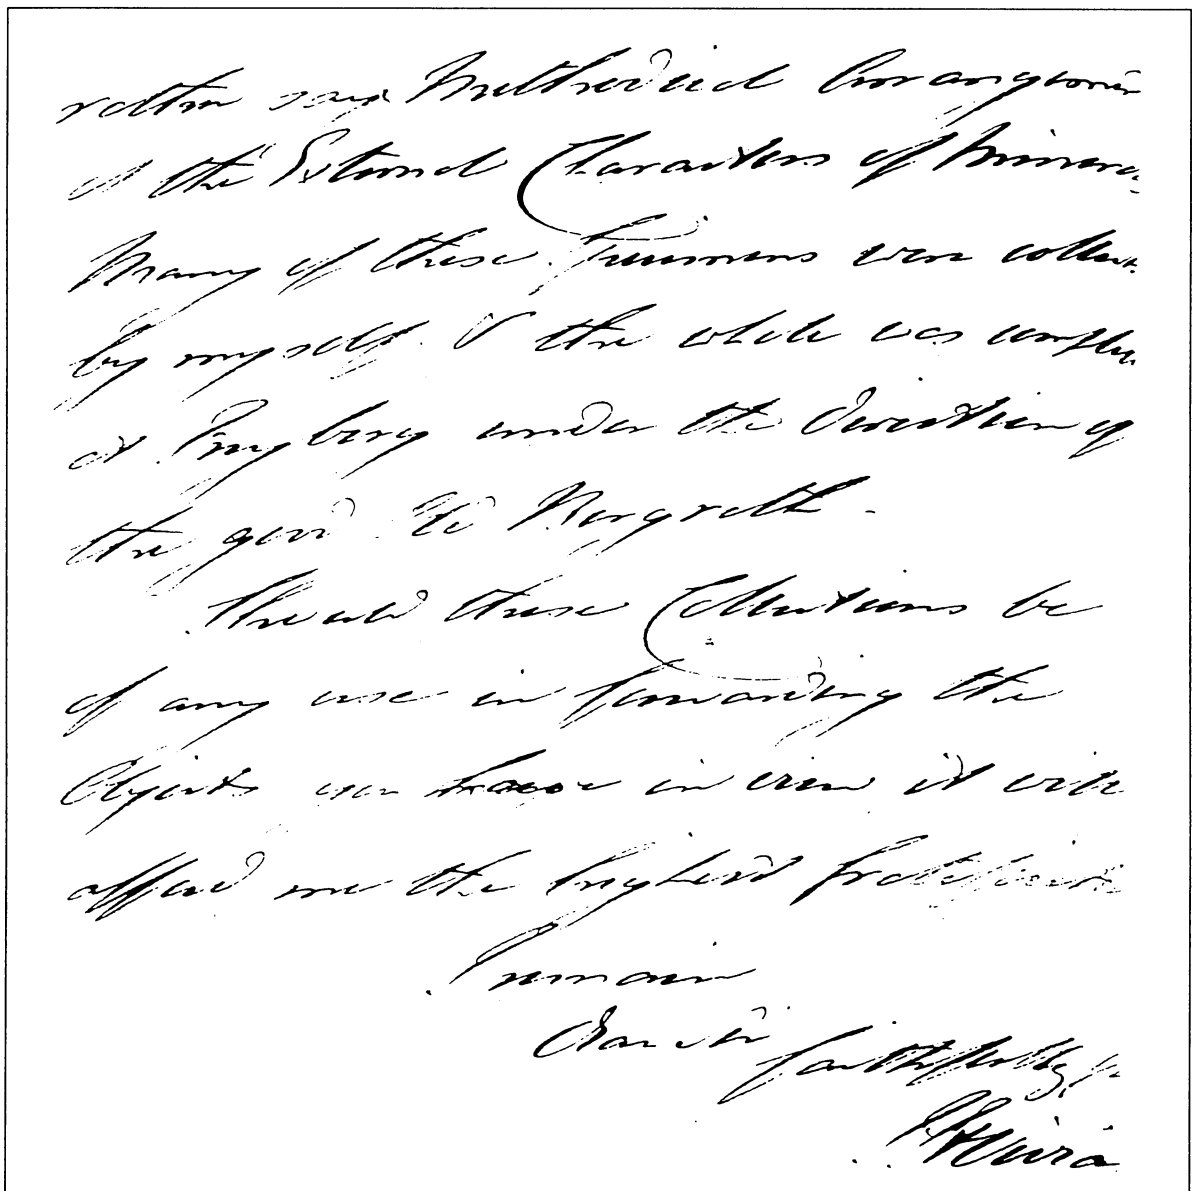 rather say Methodical Arrangemen
of the External Characters of Minera
Many of these Specimens were collect
by myself & the whole was comple
at Freyberg under the Direction of
the good
Should these Collections be
of any use in forwarding the
Objects you have in view it will
afford me the highest
I remain
Dear Sir
faithfully